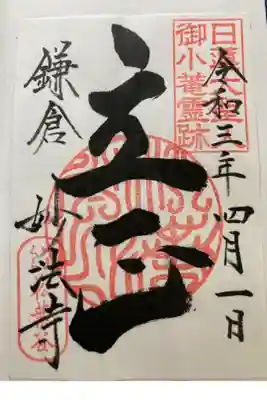 日蓮大聖人
御小菴霊跡
令和三年四月一日
立正
鎌倉
妙法寺